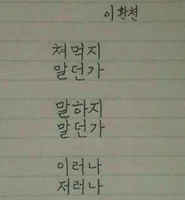 이환천
쳐먹지
말던가
말하지
말던가
이러나
저러나